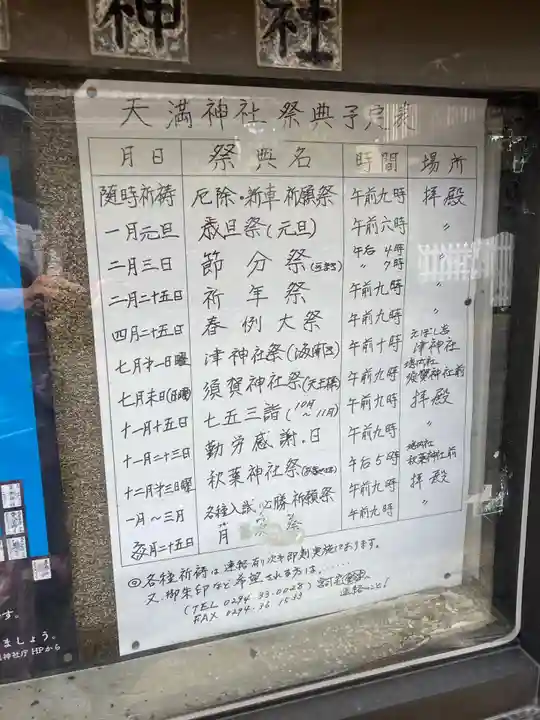 神社
天満神社 祭典予定表
月日 祭典名 時間 場所
随時祈祷 厄除・新車祈願祭 午前九時 拝殿
一月元旦 歳旦祭(元旦) 午前六時 〃
二月三日 節分祭 午后4時 〃7時 〃
二月二十五日 祈年祭 午前九時 〃
四月二十五日 春例大祭 午前九時 〃
七月才一日曜 津神社祭 午前十時 えぼし岩 津神社
七月末日(日曜) 須賀神社祭(天王様) 午前九時 境内社 須賀神社前
十一月十五日 七五三詣(10月〜11月) 午前九時 拝殿
十一月二十三日 勤労感謝・日 午前九時 〃
十二月才三日曜 秋葉神社祭 午后5時 境内社 秋葉神社前
一月〜三月 各種入試必勝祈願祭 午前九時 拝殿
毎月二十五日 月次祭 午前九時 〃
◎各種祈祷は連絡有り次第即刻実施いたします。
又、御朱印など希望される方は、......
(TEL 0294 33-0028)
FAX 0294-36 1533
連絡のこと!
です。
ましょう。
神社庁HPから